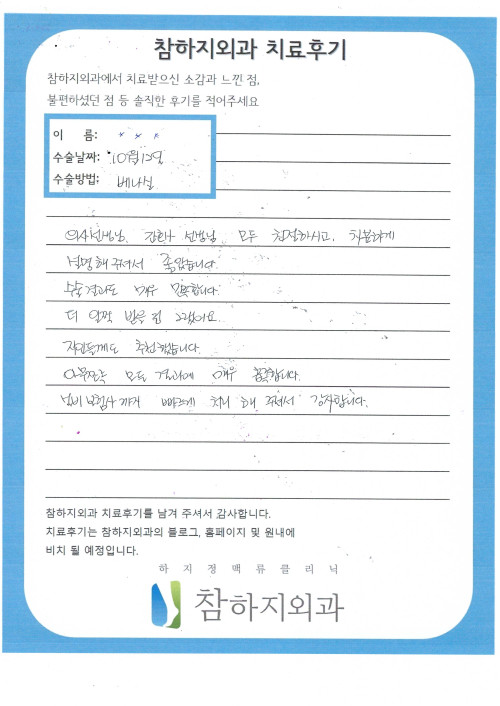 참하지외과 치료후기
참하지외과에서 치료받으신 소감과 느낀 점,
불편하셨던 점 등 솔직한 후기를 적어주세요
이 름: * * *
수술날짜: 10월12일
수술방법: 베나실
의사선생님, 간호사 선생님 모두 친절하시고, 차분하게
설명해 주셔서 좋았습니다.
수술결과도 매우 만족합니다.
더 일찍 받을 걸 그랬어요.
지인들에게도 추천하겠습니다.
아무튼 모든 결과에 매우 만족합니다.
실비 보험사 까지 빠르게 처리 해 주셔서 감사합니다.
참하지외과 치료후기를 남겨 주셔서 감사합니다.
치료후기는 참하지외과의 블로그, 홈페이지 및 원내에
비치 될 예정입니다.
하지정맥류클리닉
참하지외과